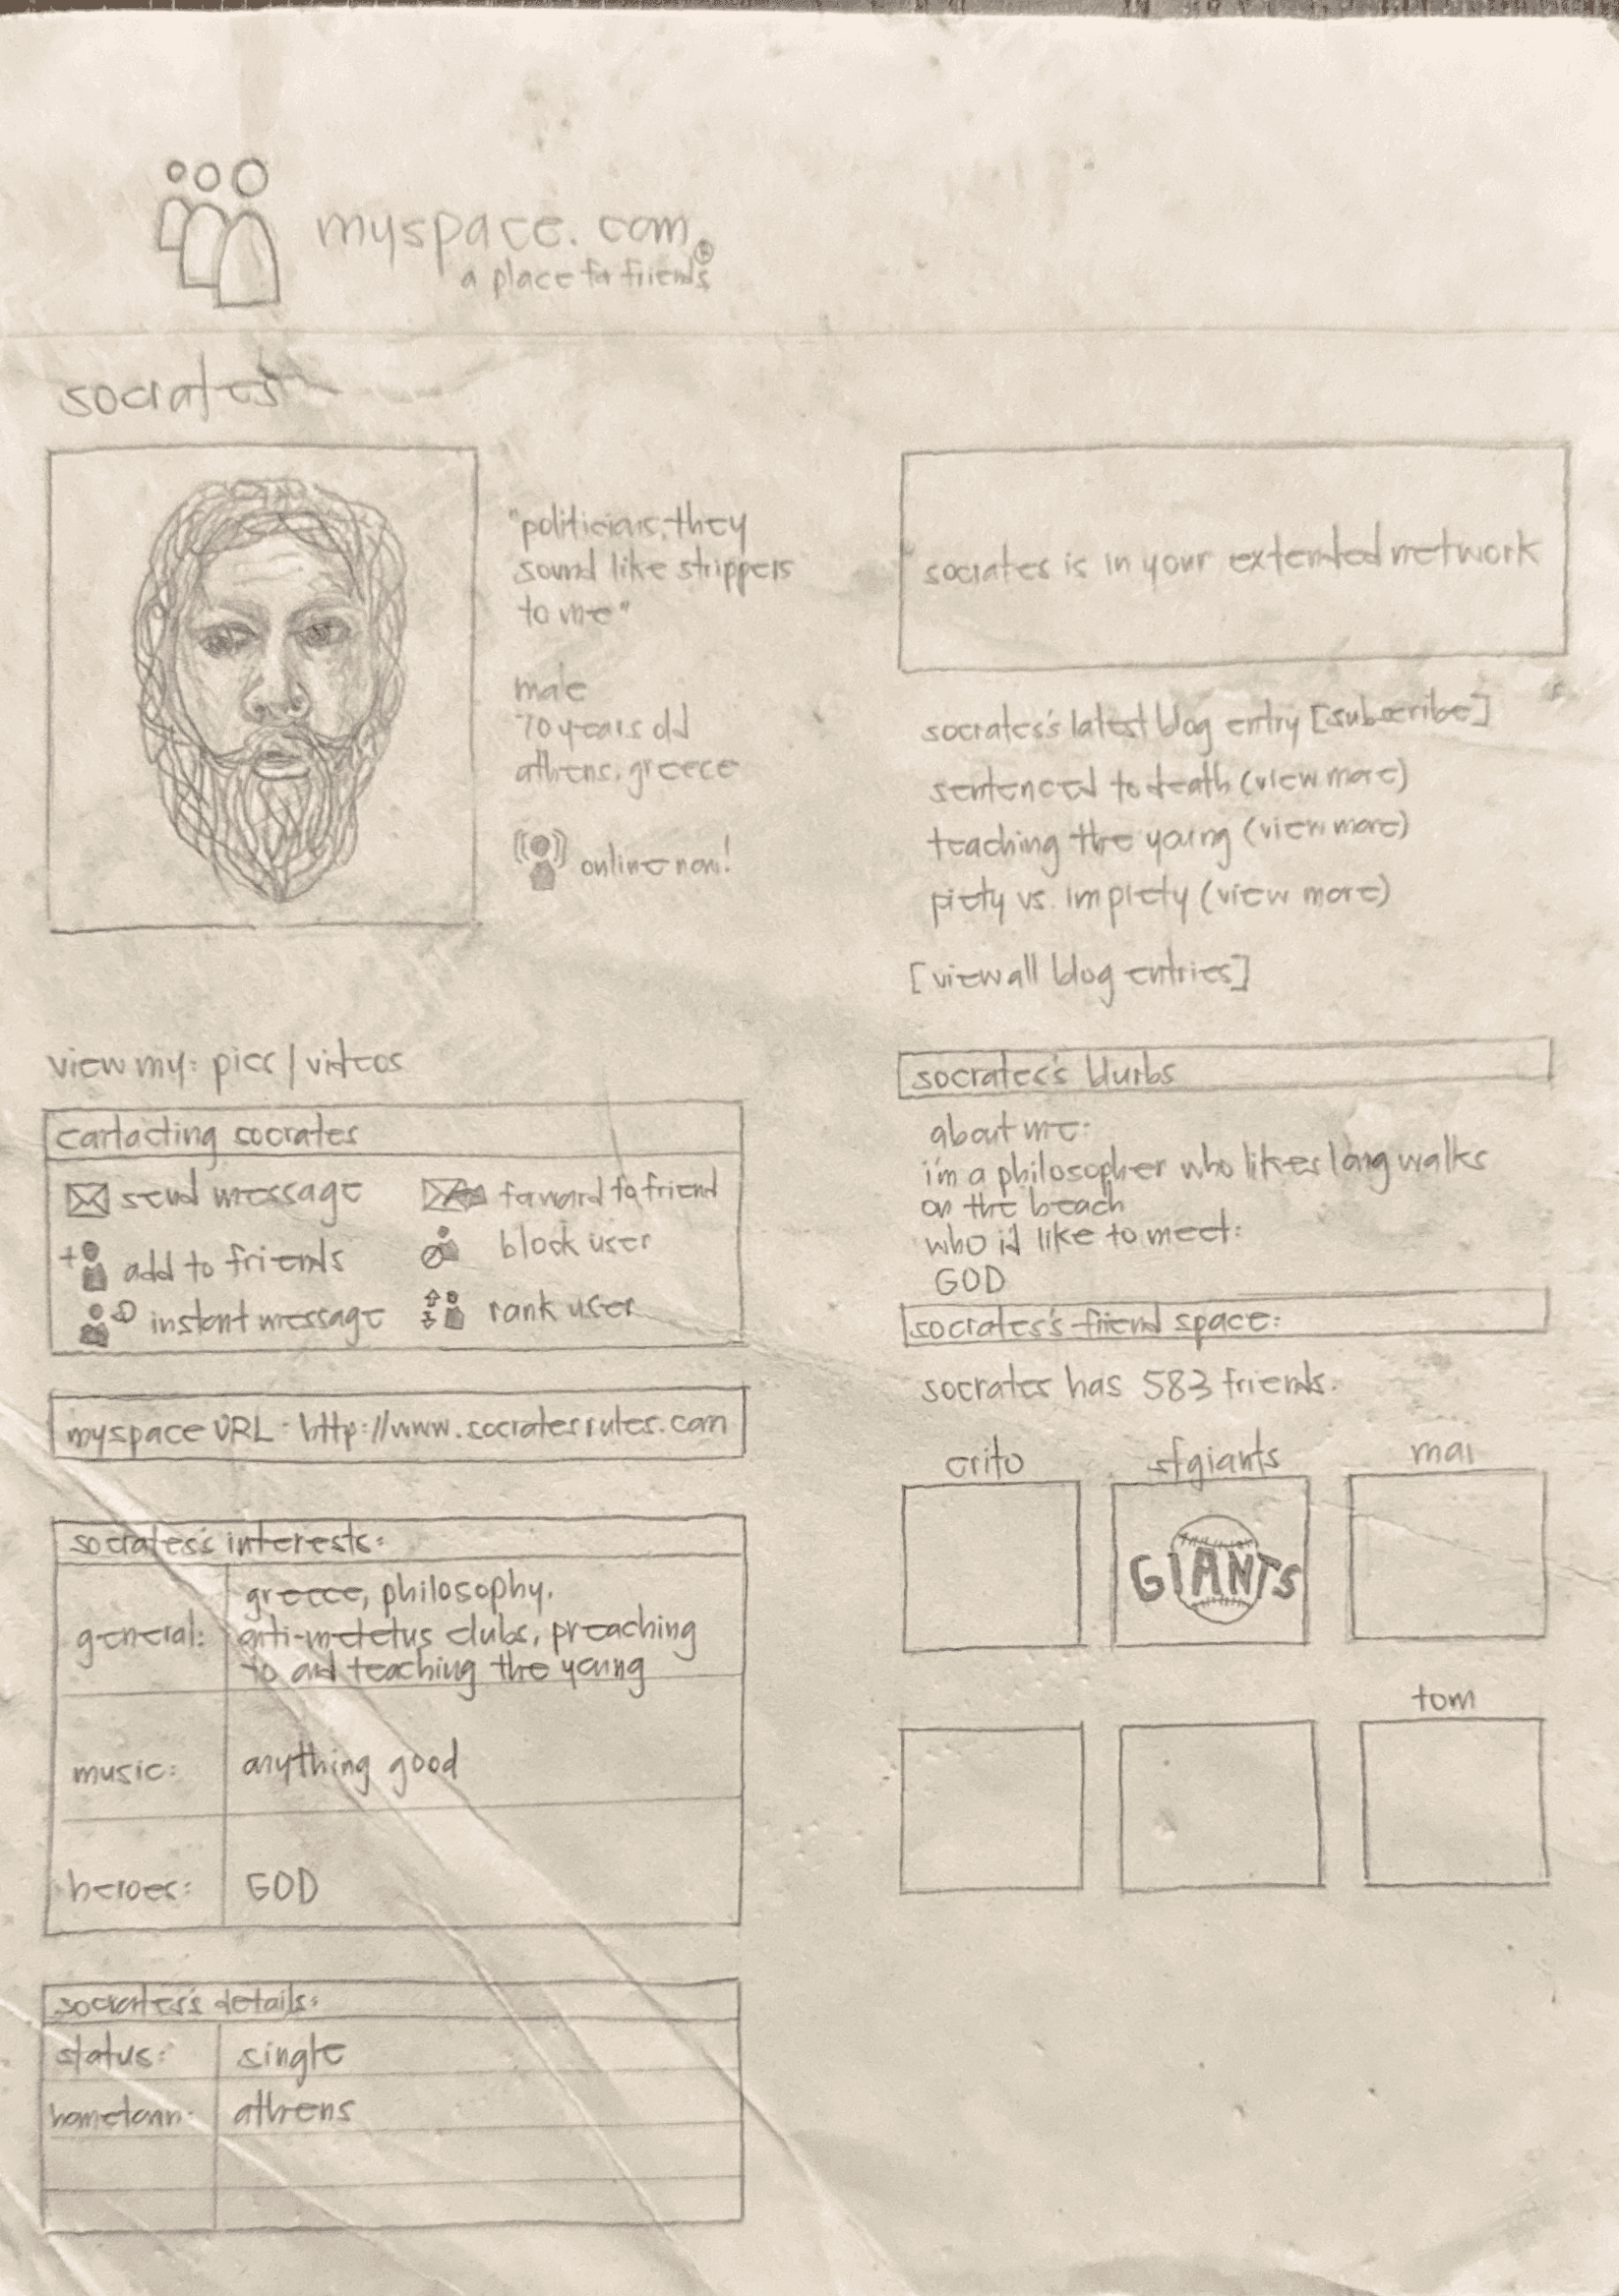 myspace.com
a place for friends
socrates
"politicians, they
sound like strippers
to me"
male
70 years old
athens, greece
online now!
view my: pics | videos
contacting socrates
send message
forward to friend
add to friends
block user
instant message
rank user
myspace URL - http://www.socratesrules.com
socrates's interests:
general:
greece, philosophy,
anti-meletus clubs, preaching
to and teaching the young
music:
anything good
heroes:
GOD
socrates's details:
status:
single
hometown:
athens
socrates is in your extended network
socrates's latest blog entry [subscribe]
sentenced to death (view more)
teaching the young (view more)
piety vs. impiety (view more)
[view all blog entries]
socrates's blurbs
about me:
i'm a philosopher who likes long walks
on the beach
who i'd like to meet:
GOD
socrates's friend space:
socrates has 583 friends.
crito
sfgiants
mai
GIANTS
tom